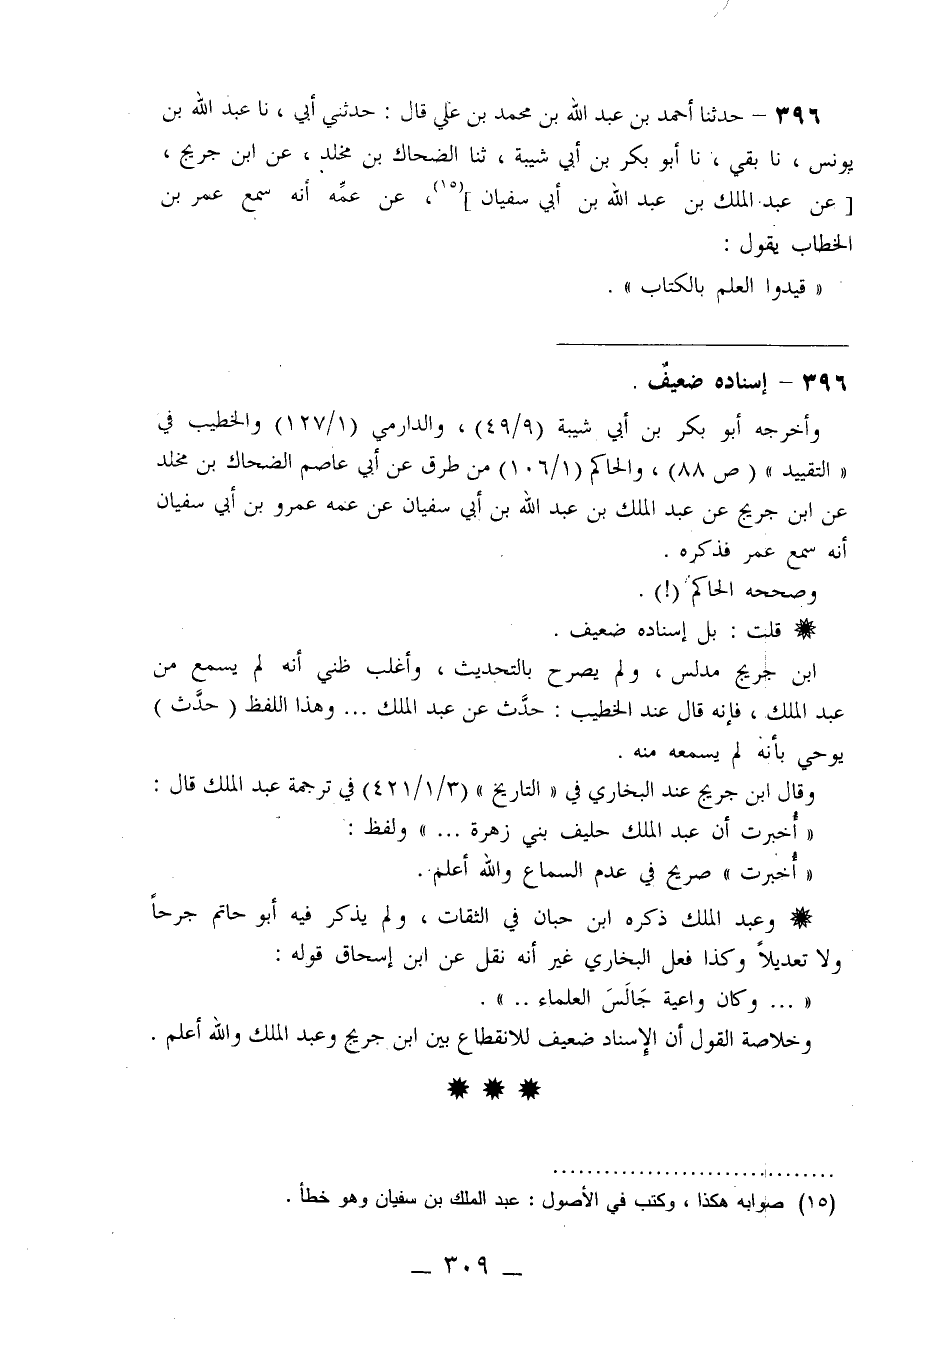 ٣٩٦ – حدثنا أحمد بن عبد الله بن محمد بن علي قال : حدثني أبي ، نا عبد الله بن
يونس ، نا بقي ، نا أبو بكر بن أبي شيبة ، ثنا الضحاك بن مخلد ، عن ابن جريج ،
[ عن عبد الملك بن عبد الله بن أبي سفيان ](١٥)، عن عمِّه أنه سمع عمر بن
الخطاب يقول :
« قيدوا العلم بالكتاب » .
٣٩٦ – إسناده ضعيفٌ .
وأخرجه أبو بكر بن أبي شيبة (٤٩/٩) ، والدارمي (١٢٧/١) والخطيب في
« التقييد » ( ص ٨٨) ، والحاكم (١٠٦/١) من طرق عن أبي عاصم الضحاك بن مخلد
عن ابن جريج عن عبد الملك بن عبد الله بن أبي سفيان عن عمه عمرو بن أبي سفيان
أنه سمع عمر فذكره .
وصححه الحاكم (!) .
✹ قلت : بل إسناده ضعيف .
ابن جريج مدلس ، ولم يصرح بالتحديث ، وأغلب ظني أنه لم يسمع من
عبد الملك ، فإنه قال عند الخطيب : حدَّث عن عبد الملك ... وهذا اللفظ ( حدَّث )
يوحي بأنه لم يسمعه منه .
وقال ابن جريج عند البخاري في « التاريخ » (٤٢١/١/٣) في ترجمة عبد الملك قال :
« أُخبرت أن عبد الملك حليف بني زهرة ... » ولفظ :
« أُخبرت » صريح في عدم السماع والله أعلم .
✹ وعبد الملك ذكره ابن حبان في الثقات ، ولم يذكر فيه أبو حاتم جرحاً
ولا تعديلاً وكذا فعل البخاري غير أنه نقل عن ابن إسحاق قوله :
« ... وكان واعية جَالَسَ العلماء .. » .
وخلاصة القول أن الإسناد ضعيف للانقطاع بين ابن جريج وعبد الملك والله أعلم .
✹ ✹ ✹
(١٥) صوابه هكذا ، وكتب في الأصول : عبد الملك بن سفيان وهو خطأ .
_ ٣٠٩ _